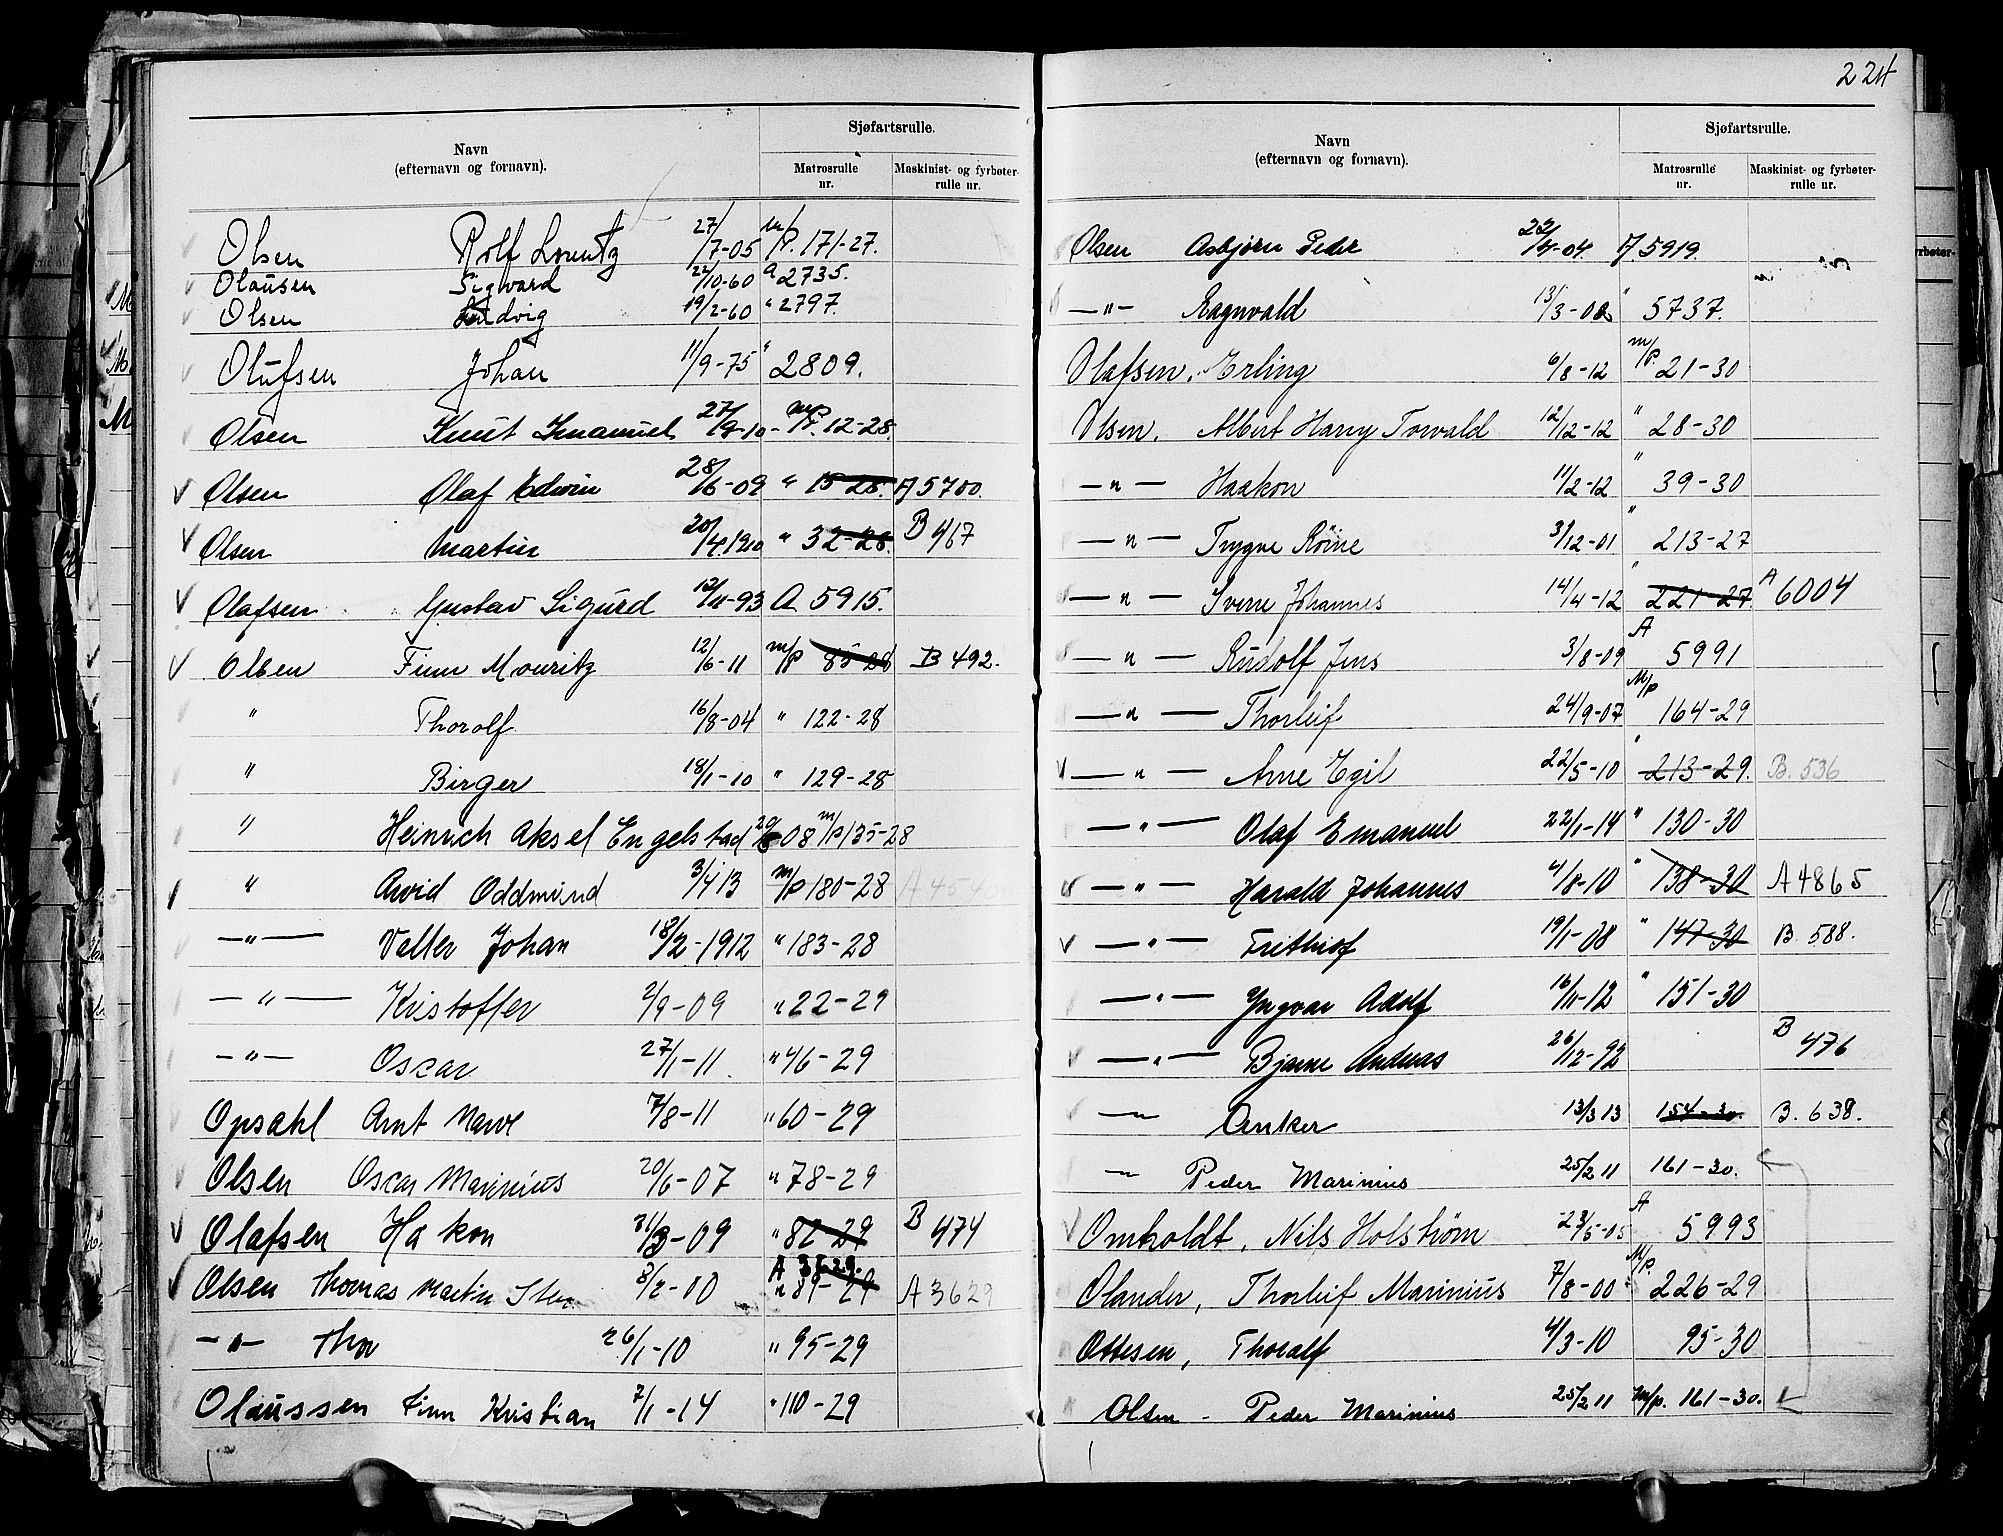 224
Navn
(efternavn og fornavn).
Sjøfartsrulle.
Matrosrulle
nr.
Maskinist- og fyrbøter-
rulle nr.
Olsen Rolf Lorentz 27/7-05 m/p. 171-27.
Olausen Sigvard 22/10-60 a 2735.
Olsen Ludvig 19/2-60 " 2797.
Olufsen Johan 11/9-75 " 2809.
Olsen Knut Imanuel 27/9-10- m/p. 12-28.
Olsen Olaf Edwin 28/6-09 " 15-28. A 5700.
Olsen Martin 20/4.1910 " 32-28. B 467
Olafsen Gustav Sigurd 12/11-93 A 5915.
Olsen Finn Mouritz 12/6-11 m/p 85-28 B 492.
" Thorolf 16/8-04 " 122-28
" Birger 18/1-10 " 129-28
" Heinrich Aksel Engelstad 08 m/p 135-28
" Arvid Oddmund 3/4 13 m/p 180-28 A 454
-"- Valter Johan 18/2-1912 " 183-28
-"- Kristoffer 2/9-09 " 22-29
-"- Oscar 27/1-11. " 46-29
Opsahl Arnt Marve 7/8-11 " 60-29
Olsen Oscar Marinius 20/6-07 " 78-29
Olafsen Hakon 31/3-09 " 82-29 B 474
Olsen Thomas Martin Sten 8/2-00 A 3629. " 89-29 A 3629
-"- Thor 26/1-10 " 95-29
Olaussen Finn Kristian 7/1-14 " 110-29
Navn
(efternavn og fornavn).
Sjøfartsrulle.
Matrosrulle
nr.
Maskinist- og fyrbøter-
rulle nr.
Olsen Asbjørn Peder 22/4-04. A. 5919.
-"- Ragnvald 13/3-08 " 5737.
Olafsen, Erling 6/8-12 m/p. 21-30
Olsen, Albert Harry Torvald 12/12-12 " 28-30
-"- Haakon 11/2-12 " 39-30
-"- Trygve Røine 3/12-01 " 213-27
-"- Sverre Johannes 14/4-12 " 221-27 A 6004
-"- Rudolf Jens 3/8-09 A 5991
-"- Thorleif 24/9-07 M/p 164-29
-"- Arne Egil 22/5-10 " 213-29. B. 536
-"- Olaf Emanuel 22/1-14 " 130-30
-"- Harald Johannes 4/8-10 " 138-30 A 4865
-"- Frithiof 19/1-08 " 147-30 B. 588.
-"- Yngvar Adolf 16/11-12 " 151-30
-"- Bjarne Andreas 26/12-92 B 476
-"- Anker 13/3 13 154-30. B. 638.
-"- Peder Marinius 25/2 11 161-30.
Omholdt, Nils Holstrøm 23/5-05 A 5993
Olander, Thorleif Marinius 7/8-00 M/p. 226-29
Ottesen, Thoralf 4/3-10 95-30
Olsen - Peder Marinius 25/2 11 m/p. 161-30.